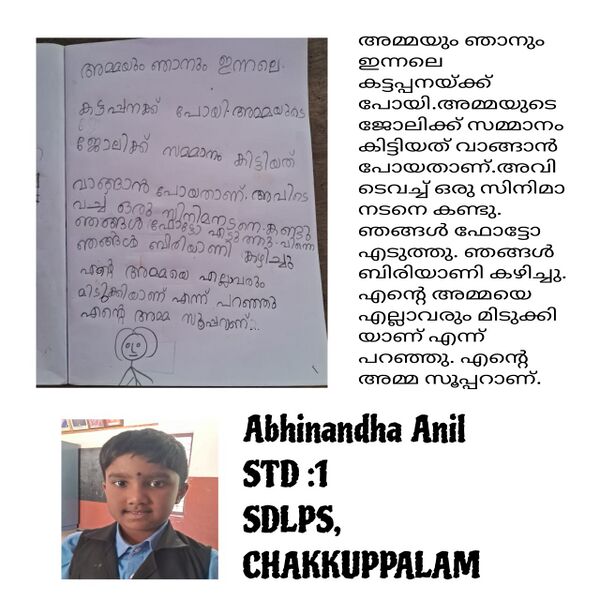 അമ്മയും ഞാനും ഇന്നലെ.
കട്ടപ്പനക്ക് പോയി.അമ്മയുടെ
ജോലിക്ക് സമ്മാനം കിട്ടിയത്
വാങ്ങാൻ പോയതാണ്. അവിടെ
വച്ച് ഒരു സിനിമനടനെ കണ്ടു
ഞങ്ങൾ ഫോട്ടോ എടുത്തു. പിന്നെ
ഞങ്ങൾ ബിരിയാണി കഴിച്ചു
എന്റെ അമ്മയെ എല്ലാവരും
മിടുക്കിയാണ് എന്ന് പറഞ്ഞു
എന്റെ അമ്മ സൂപ്പറാണ്...
അമ്മയും ഞാനും
ഇന്നലെ
കട്ടപ്പനയ്ക്ക്
പോയി.അമ്മയുടെ
ജോലിക്ക് സമ്മാനം
കിട്ടിയത് വാങ്ങാൻ
പോയതാണ്.അവി
ടെവച്ച് ഒരു സിനിമാ
നടനെ കണ്ടു.
ഞങ്ങൾ ഫോട്ടോ
എടുത്തു. ഞങ്ങൾ
ബിരിയാണി കഴിച്ചു.
എന്റെ അമ്മയെ
എല്ലാവരും മിടുക്കി
യാണ് എന്ന്
പറഞ്ഞു. എന്റെ
അമ്മ സൂപ്പറാണ്.
Abhinandha Anil
STD :1
SDLPS,
CHAKKUPPALAM